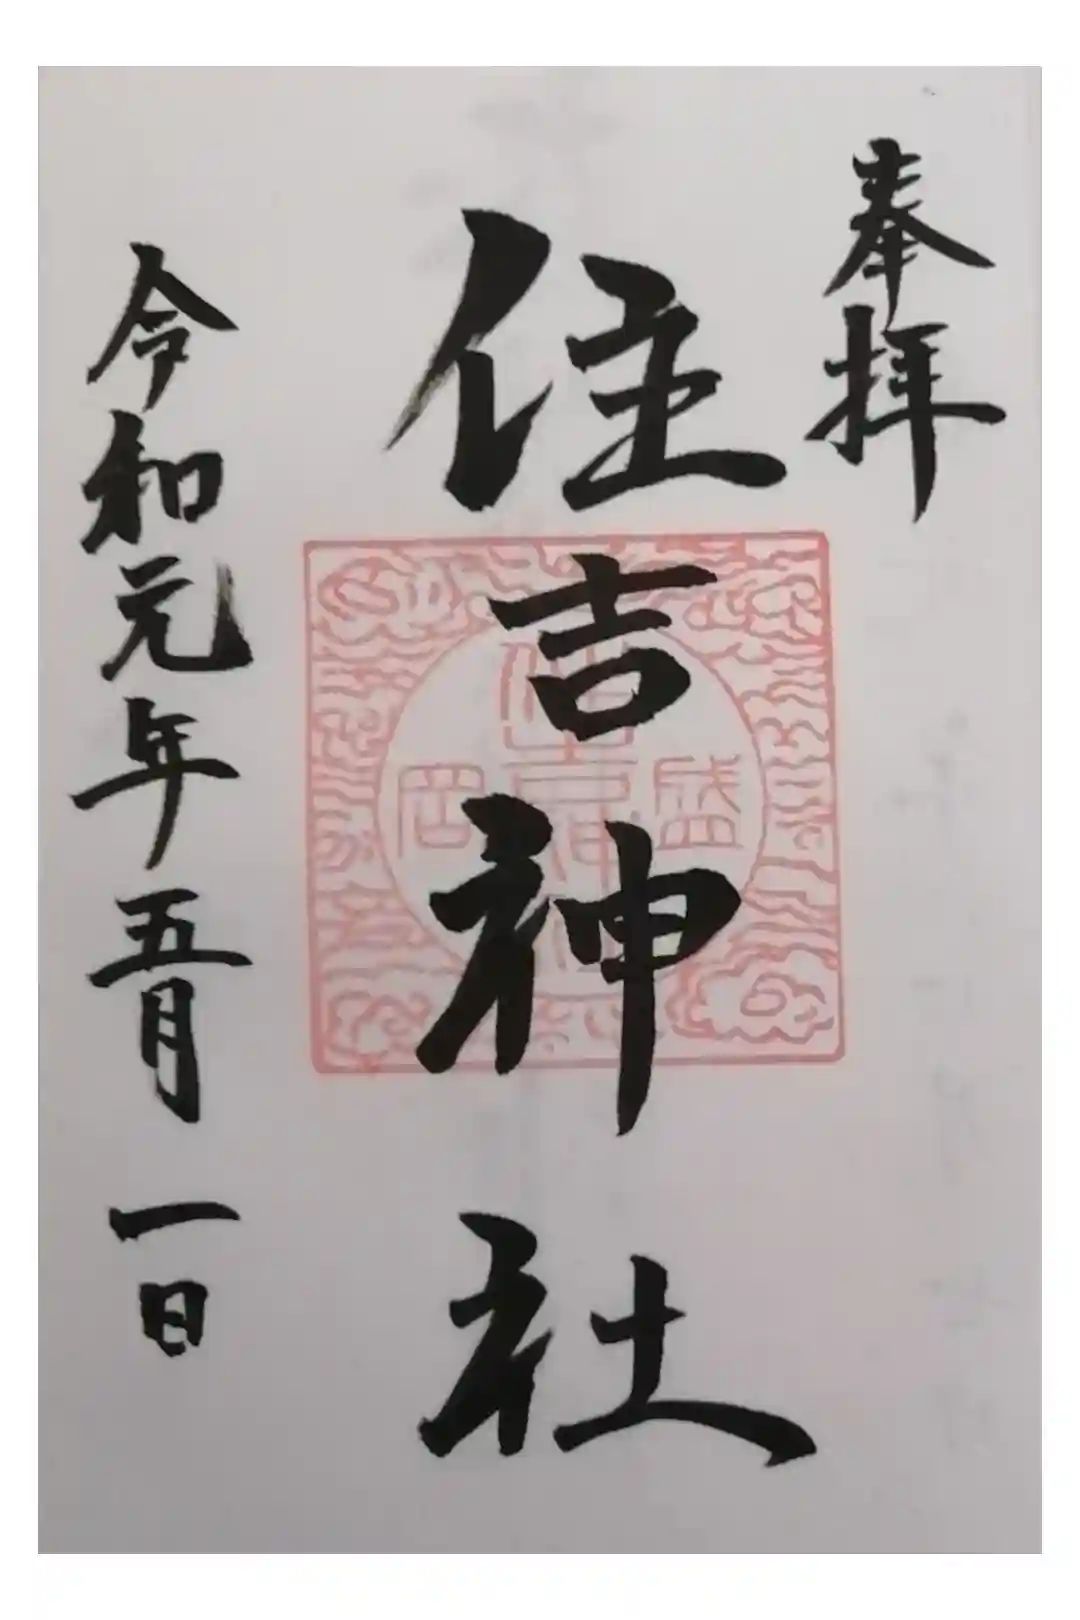 奉拝
住吉神社
盛
岡
令和元年五月一日